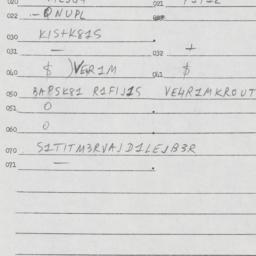 020 021
022 -QNUPL
030 KIS+K81S
031 — 032 +
040 $ )VE4R1M 041 $
050 BABSK81 R1FIJ1S VE4R1MKROUT
051 0
060 0
070 S1TITM3RVAJD1LEJB3R
071 —